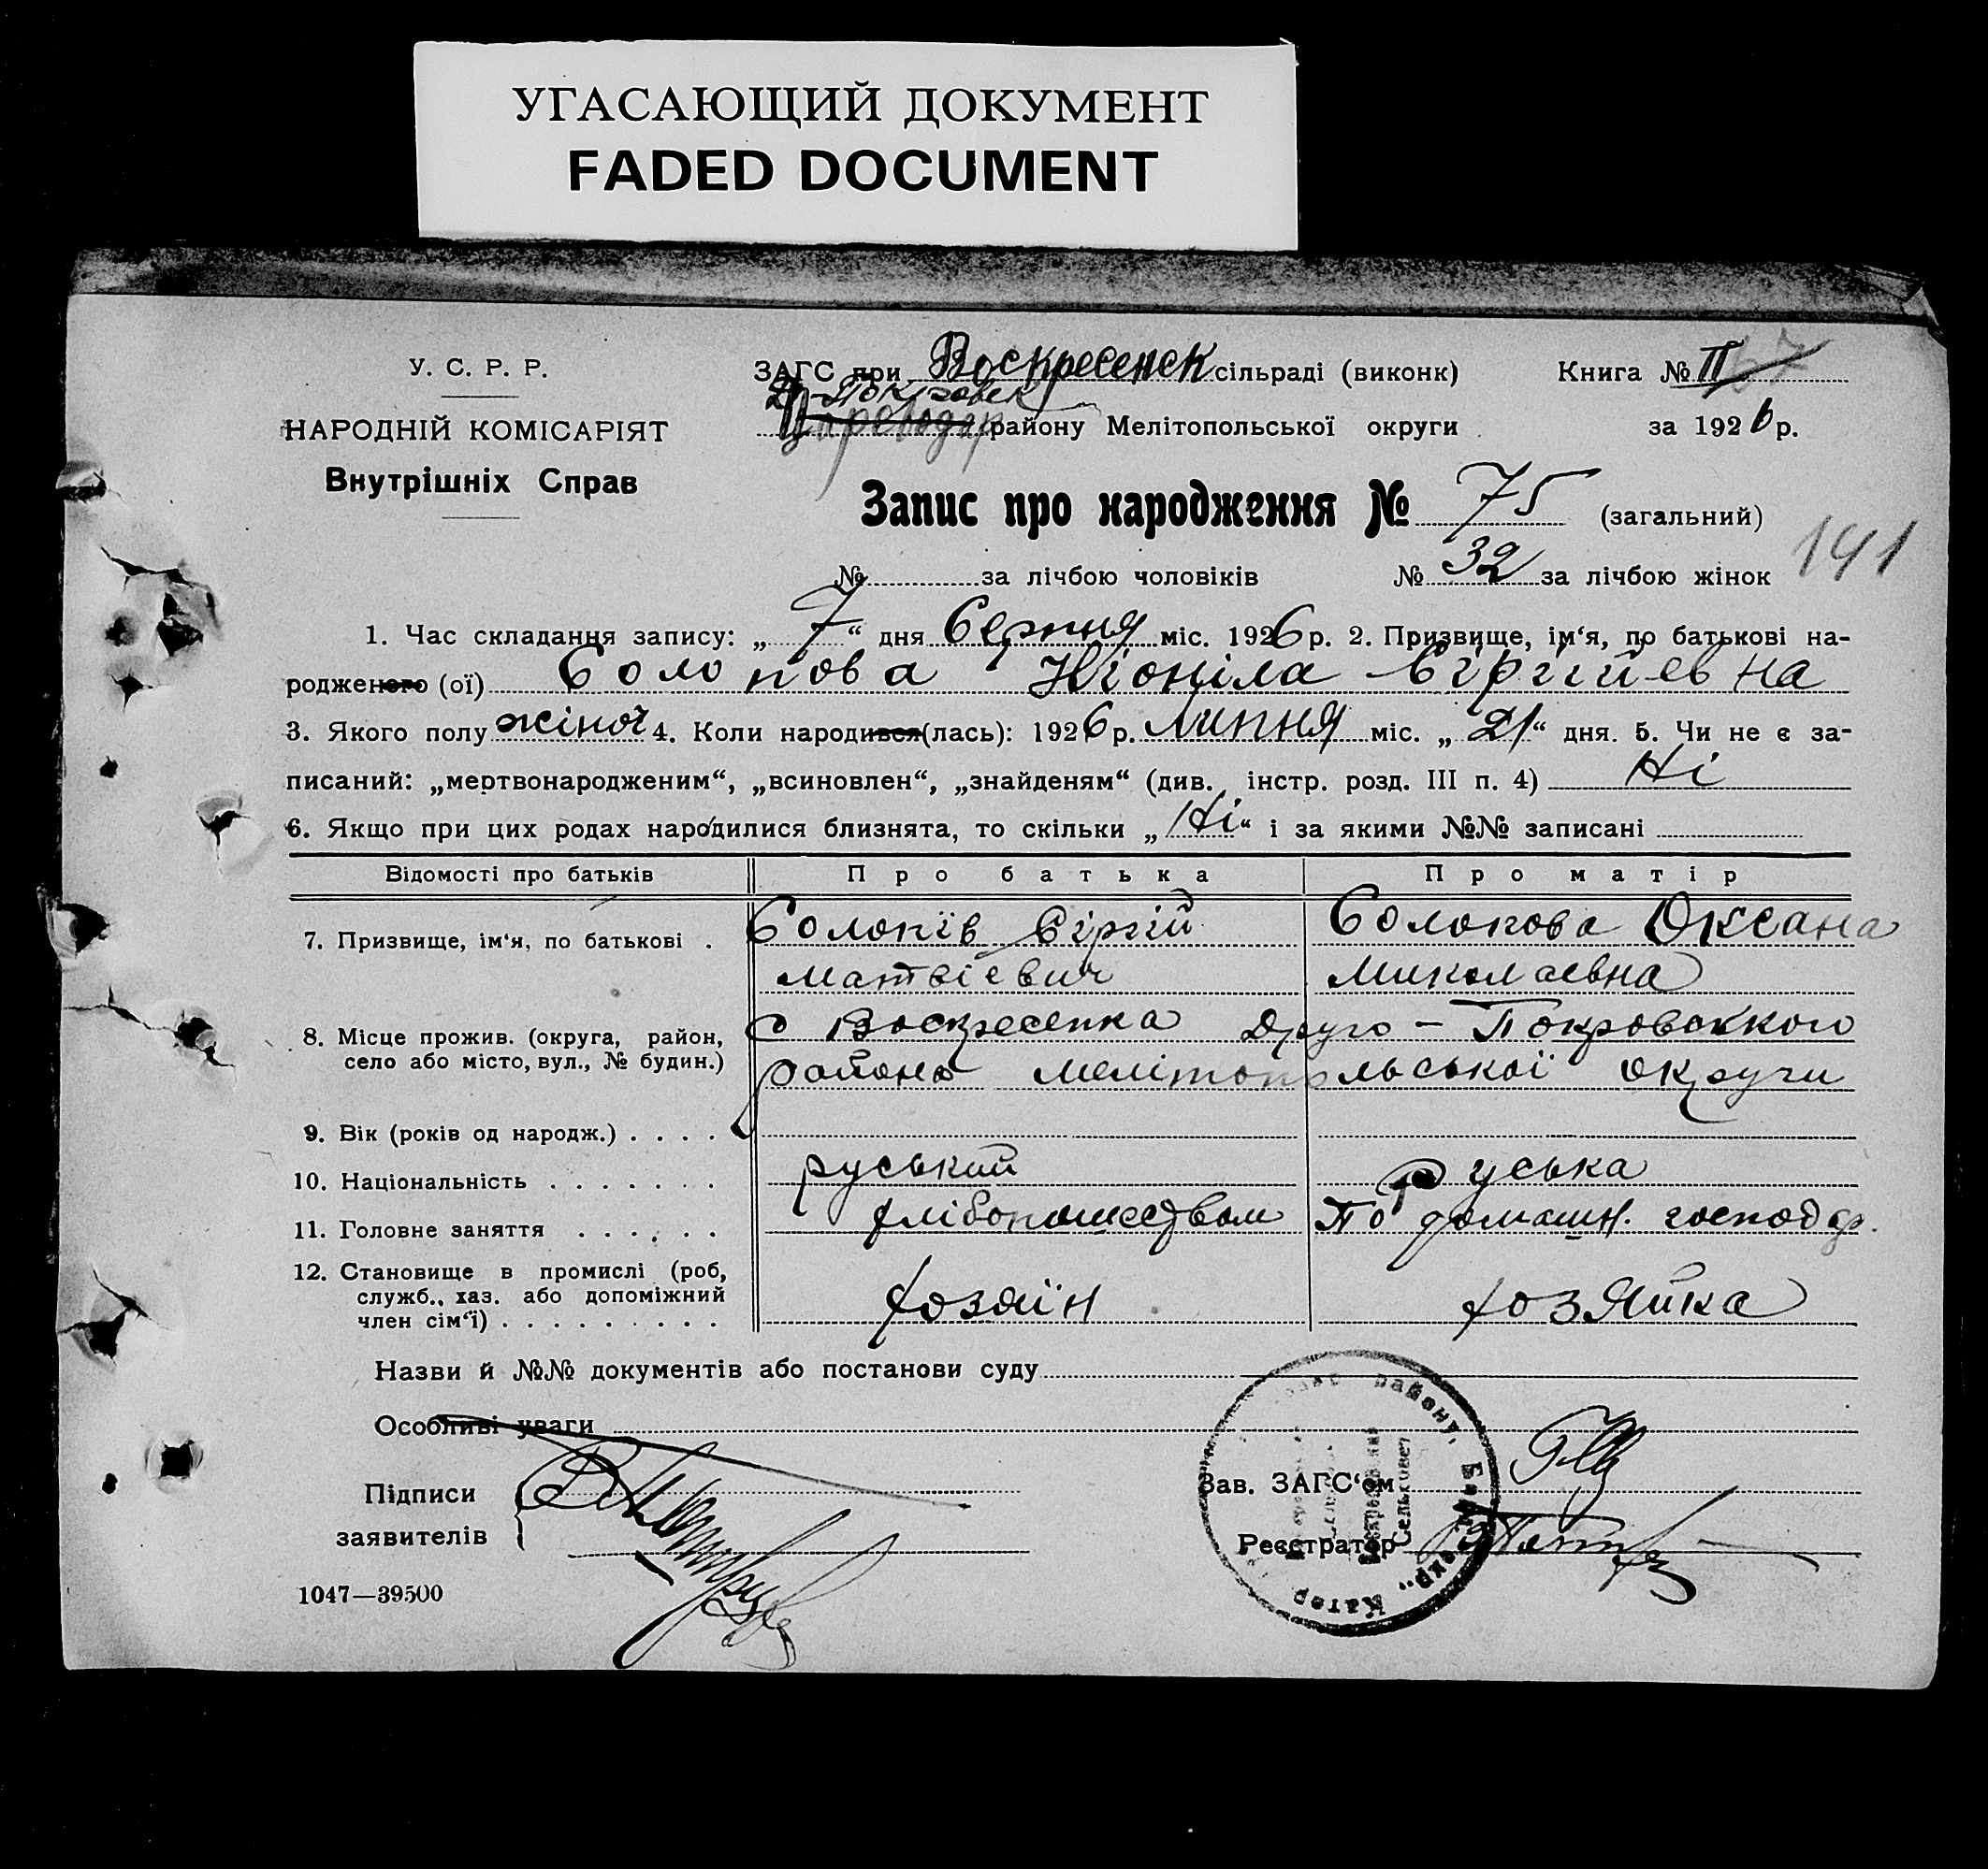 УГАСАЮЩИЙ ДОКУМЕНТ
FADED DOCUMENT
У. С. Р. Р.
НАРОДНІЙ КОМІСАРІЯТ
Внутрішніх Справ
ЗАГС при Воскресенск сільраді (виконк)
Книга № II
Д-Покровск
району Мелітопольської округи
за 1926 р.
Запис про народження № 75 (загальний)
141
№ за лічбою чоловіків № 32 за лічбою жінок
1. Час складання запису: „7“ дня Серпня міс. 1926 р. 2. Призвище, ім‘я, по батькові на-
родженого (ої) Солопова Ніоніла Сіргійевна
3. Якого полу жіноч 4. Коли народився(лась): 1926 р. Липня міс. „21“ дня. 5. Чи не є за-
писаний: „мертвонародженим“, „всиновлен“, „знайденям“ (див. інстр. розд. III п. 4) Ні
6. Якщо при цих родах народилися близнята, то скільки „Ні“ і за якими №№ записані
Відомості про батьків Про батька Про матір
7. Призвище, ім‘я, по батькові . Солопів Сіргій Солопова Оксана
Матвієвич Миколаевна
8. Місце прожив. (округа, район, с Воскресенка Друго-Покровсккого
село або місто, вул., № будин.) района Мелітопольської округи
9. Вік (років од народж.) . . . .
10. Національність . . . . . . . руський Руська
11. Головне заняття . . . . . . хлібопашеством По домашн. господар.
12. Становище в промислі (роб,
служб., хаз. або допоміжний хозяїн хозяйка
член сім‘ї) . . . . . . . . .
Назви й №№ документів або постанови суду
Особливі уваги
Підписи
заявителів
Зав. ЗАГС‘ом
Реєстратор
району,
Сельсовет
1047—39500